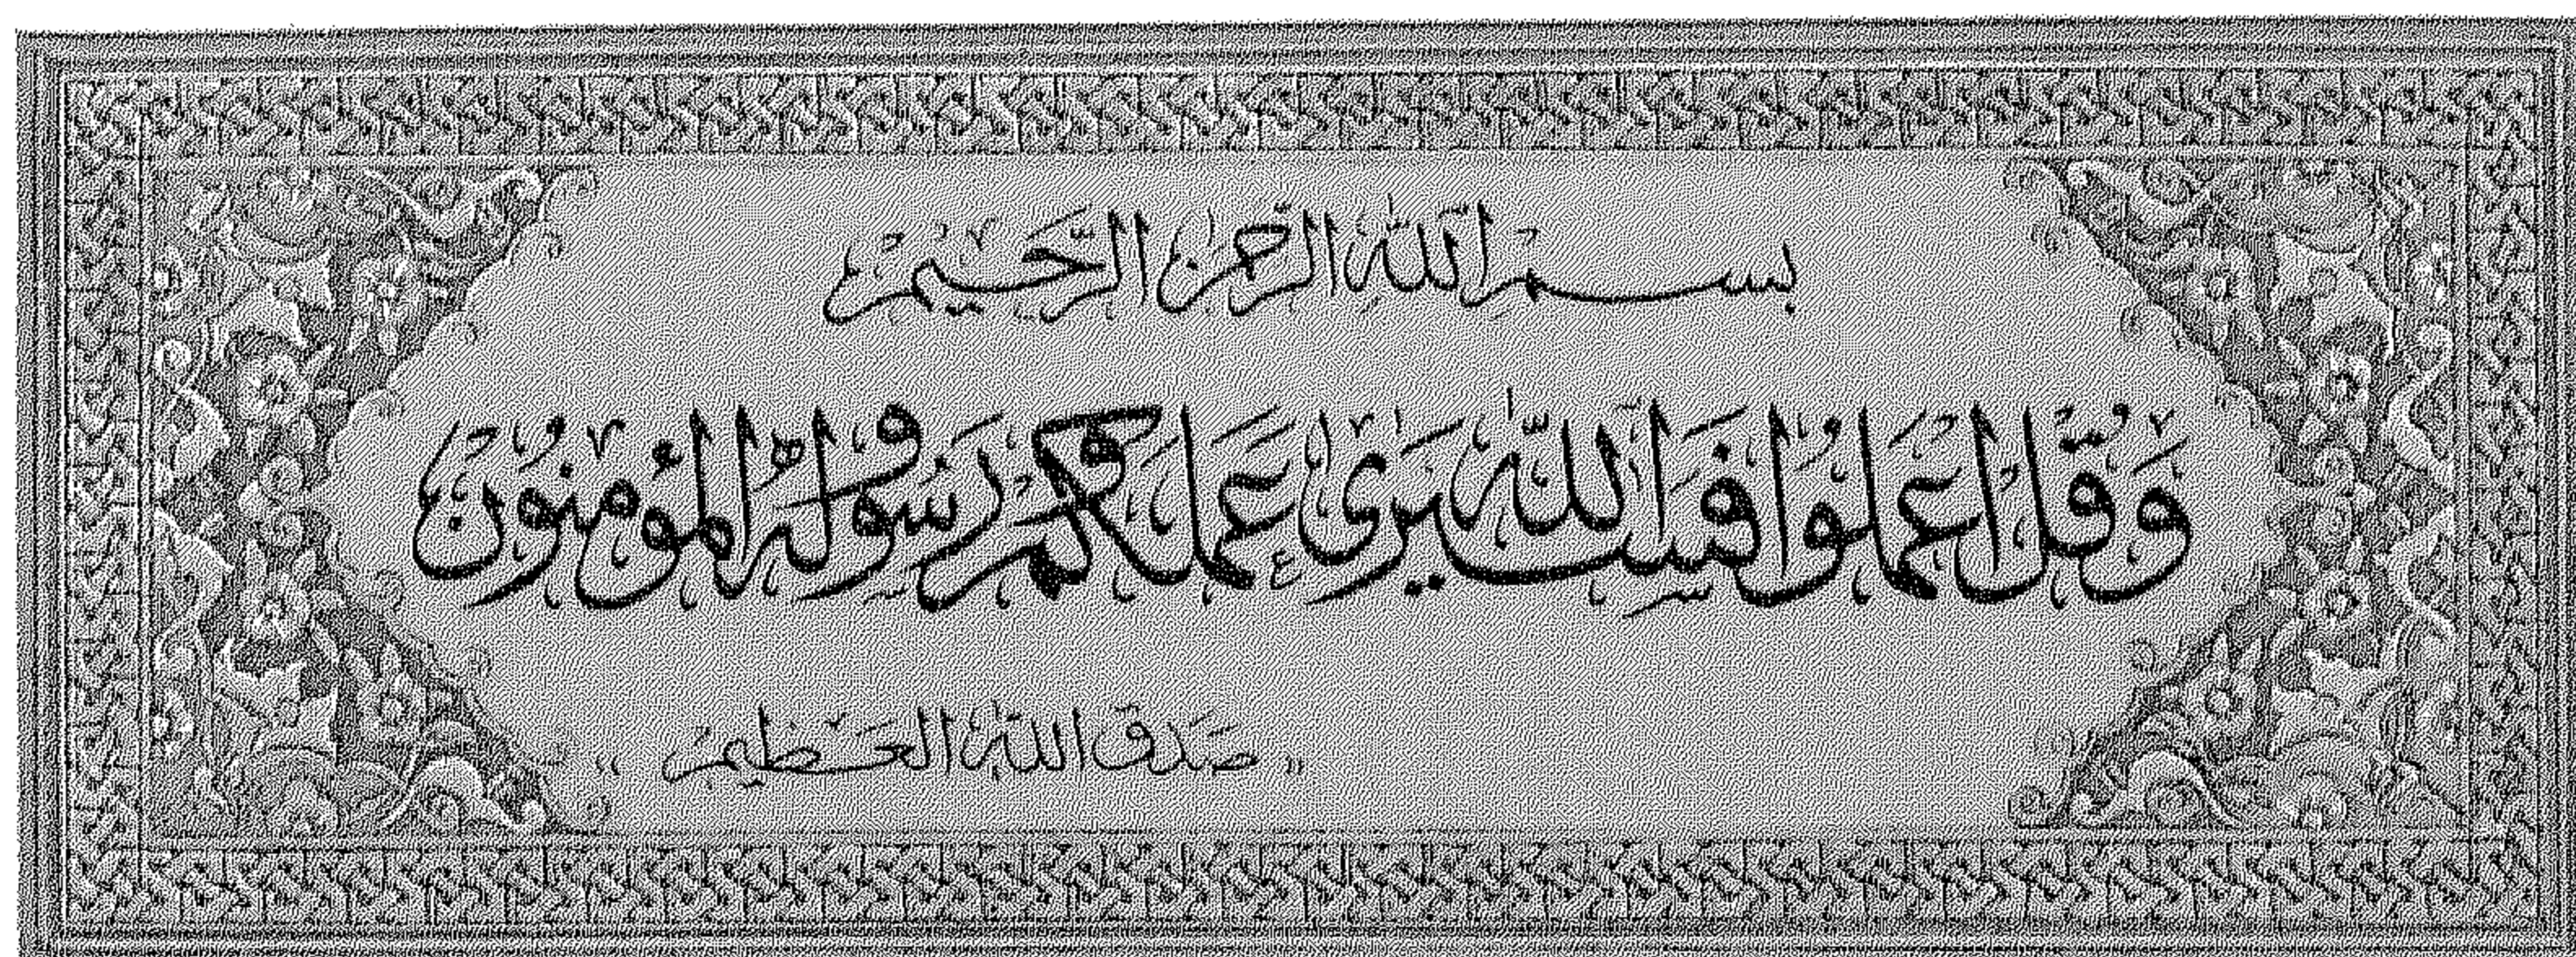 بِسْمِ اللَّهِ الرَّحْمَنِ الرَّحِيمِ
وَقُلِ اعْمَلُوا فَسَيَرَى اللَّهُ عَمَلَكُمْ وَرَسُولُهُ وَالْمُؤْمِنُونَ
« صَدَقَ اللَّهُ الْعَظِيمُ »